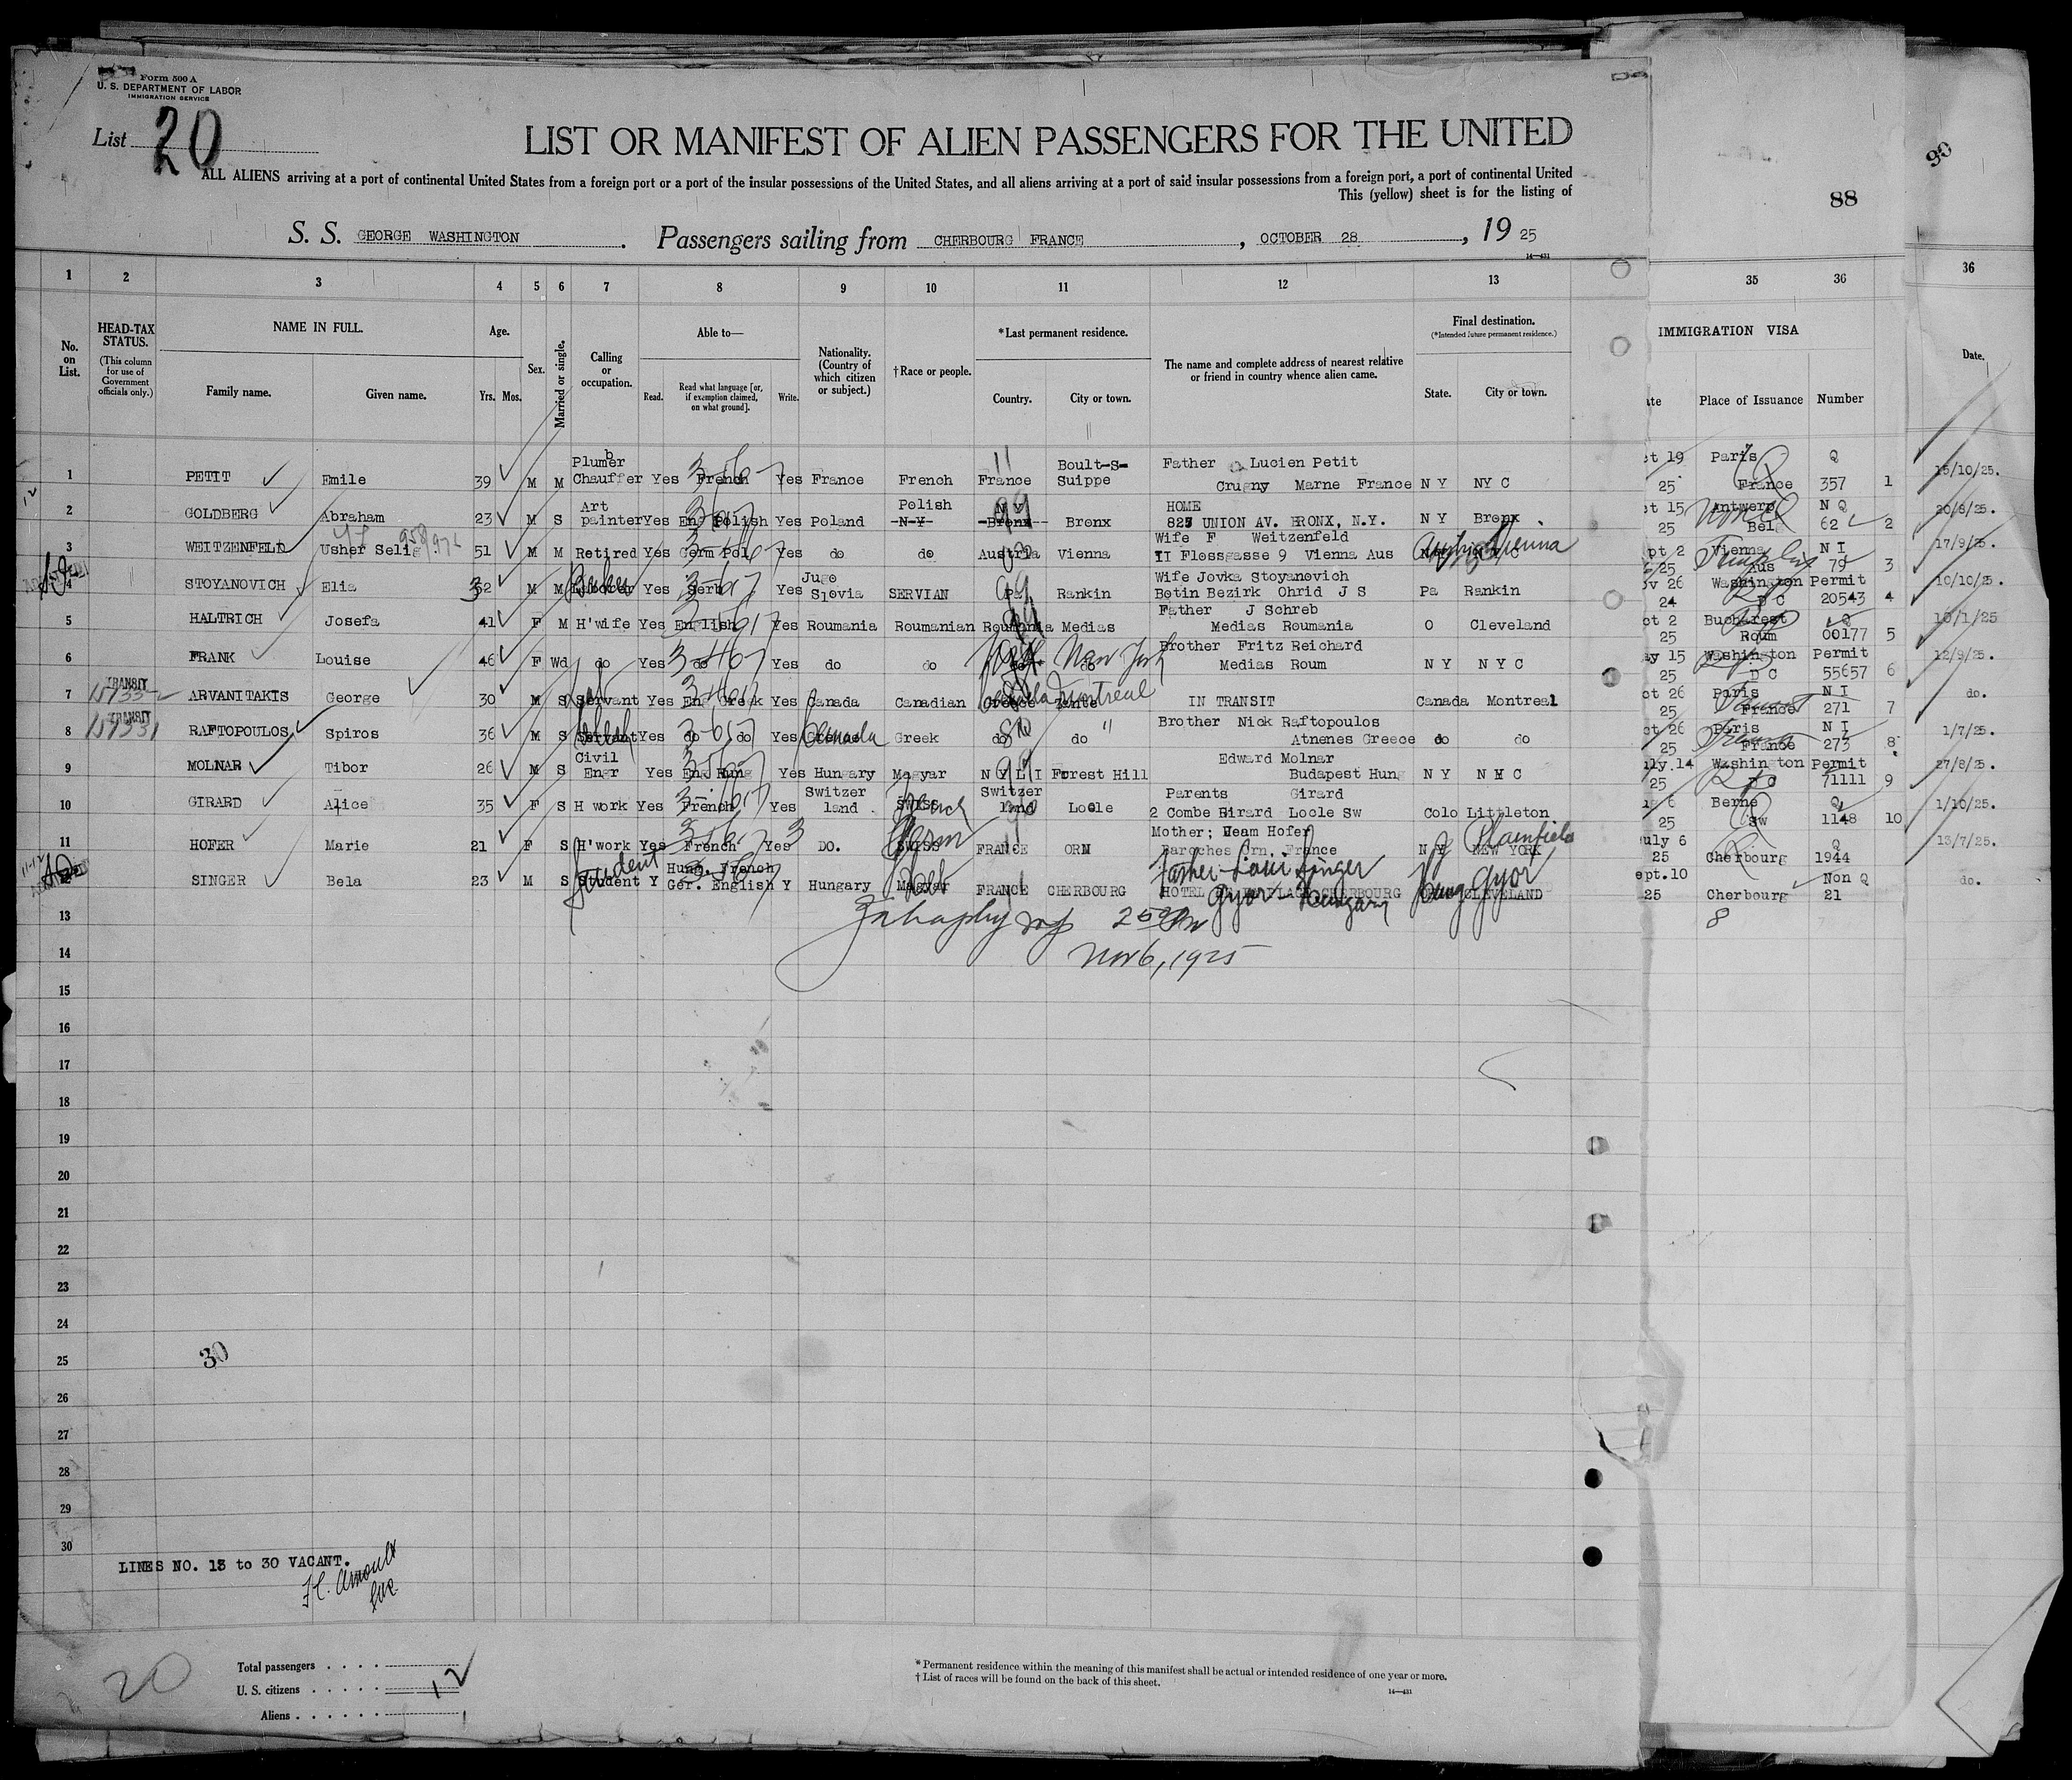 Form 500 A
U. S. DEPARTMENT OF LABOR
IMMIGRATION SERVICE
List 20
LIST OR MANIFEST OF ALIEN PASSENGERS FOR THE UNITED
ALL ALIENS arriving at a port of continental United States from a foreign port or a port of the insular possessions of the United States, and all aliens arriving at a port of said insular possessions from a foreign port, a port of continental United
This (yellow) sheet is for the listing of
88
90
S. S. GEORGE WASHINGTON . Passengers sailing from CHERBOURG FRANCE , OCTOBER 28 , 19 25
14—431
1 2 3 4 5 6 7 8 9 10 11 12 13 35 36 36
No. on List.
HEAD-TAX STATUS.
(This column for use of Government officials only.)
NAME IN FULL.
Family name. Given name.
Age.
Yrs. Mos.
Sex.
Married or single.
Calling or occupation.
Able to—
Read. Read what language [or, if exemption claimed, on what ground]. Write.
Nationality. (Country of which citizen or subject.)
†Race or people.
*Last permanent residence.
Country. City or town.
The name and complete address of nearest relative or friend in country whence alien came.
Final destination.
(*Intended future permanent residence.)
State. City or town.
IMMIGRATION VISA
Place of Issuance Number
Date.
1 PETIT Emile 39 M M Plumer Chauffer Yes French Yes France French France Boult-S-Suippe Father Lucien Petit Crugny Marne France N Y NY C 19 25 Paris France Q 357 1 15/10/25.
2 GOLDBERG Abraham 23 M S Art painter Yes Eng Polish Yes Poland Polish N Y Bronx Bronx HOME UNION AV. BRONX, N.Y. N Y Bronx 15 25 Antwerp Bel N Q 62 2 20/8/25.
3 WEITZENFELD Usher Selig 51 M M Retired Yes Germ Pol Yes do do Austria Vienna Wife F Weitzenfeld II Flossgasse 9 Vienna Aus Austria Vienna 2 25 Vienna Aus N I 79 3 17/9/25.
4 STOYANOVICH Elia 32 M M Yes Serb Yes Jugo Slovia SERVIAN Pa Rankin Wife Jovka Stoyanovich Botin Bezirk Ohrid J S Pa Rankin 26 24 Washington D C Permit 20543 4 10/10/25.
5 HALTRICH Josefa 41 F M H'wife Yes English Yes Roumania Roumanian Roumania Medias Father J Schreb Medias Roumania O Cleveland 2 25 Bucharest Roum Q 00177 5 10/1/25
6 FRANK Louise 46 F Wd do Yes do Yes do do do New York Brother Fritz Reichard Medias Roum N Y N Y C 15 25 Washington D C Permit 55657 6 12/9/25.
TRANSIT
7 ARVANITAKIS George 30 M S Servant Yes Eng Greek Yes Canada Canadian Greece Zante Canada Montreal IN TRANSIT Canada Montreal 26 25 Paris France N I 271 7 do.
TRANSIT
8 RAFTOPOULOS Spiros 36 M S Servant Yes do do Yes Canada Greek do do " Brother Nick Raftopoulos Atnenes Greece do do 26 25 Paris France N I 273 8 1/7/25.
9 MOLNAR Tibor 26 M S Civil Engr Yes Eng Hung Yes Hungary Magyar N Y L I Forest Hill Edward Molnar Budapest Hung N Y N Y C 14 25 Washington D C Permit 71111 9 27/8/25.
10 GIRARD Alice 35 F S H work Yes French Yes Switzer land SWISS French Switzer land Locle Parents Girard 2 Combe Girard Locle Sw Colo Littleton 6 25 Berne Sw Q 1148 10 1/10/25.
11 HOFER Marie 21 F S H'work Yes French Yes DO. SWISS Germ FRANCE ORN Mother; Hofer Baroches Orn, France N Y NEW YORK N J Plainfield July 6 25 Cherbourg Q 1944 13/7/25.
12 SINGER Bela 23 M S Student Student Y Hung. French Ger. English Y Hungary Magyar FRANCE CHERBOURG Father Singer Gyor Hungary HOTEL CHERBOURG CLEVELAND Hung Gyor Sept.10 25 Cherbourg Non Q 21 do.
13 8
14 Nov 6, 1925
15
16
17
18
19
20
21
22
23
24
25 30
26
27
28
29
30
LINES NO. 13 to 30 VACANT.
20
Total passengers . . . .
U. S. citizens . . . . . 12
Aliens . . . . . .
*Permanent residence within the meaning of this manifest shall be actual or intended residence of one year or more.
†List of races will be found on the back of this sheet.
14—431